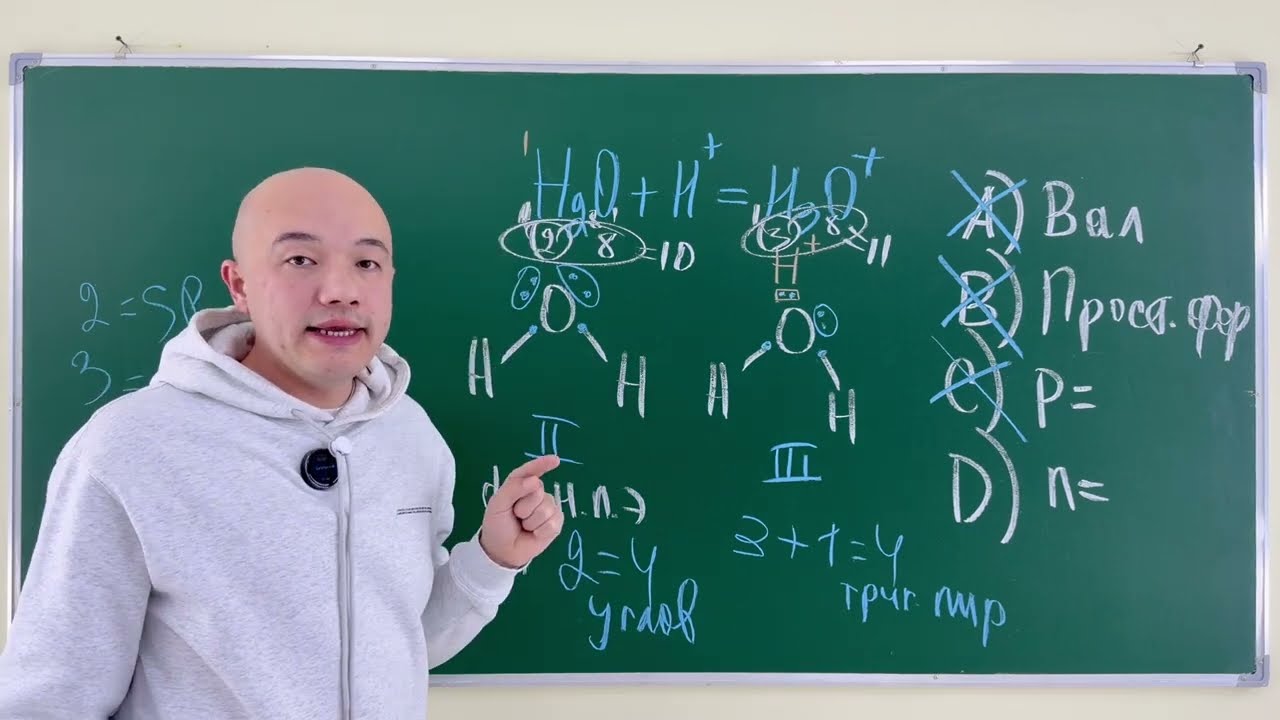 H₂O + H⁺ = H₃O⁺
2 8 = 10
3 8 11
H +
O
H H
O
H H
II
III
н.п.э
2=4
углов
3+1=4
триг. пир
2=SP
3=
A) Вал
B) Прост. фор
C) P=
D) n=